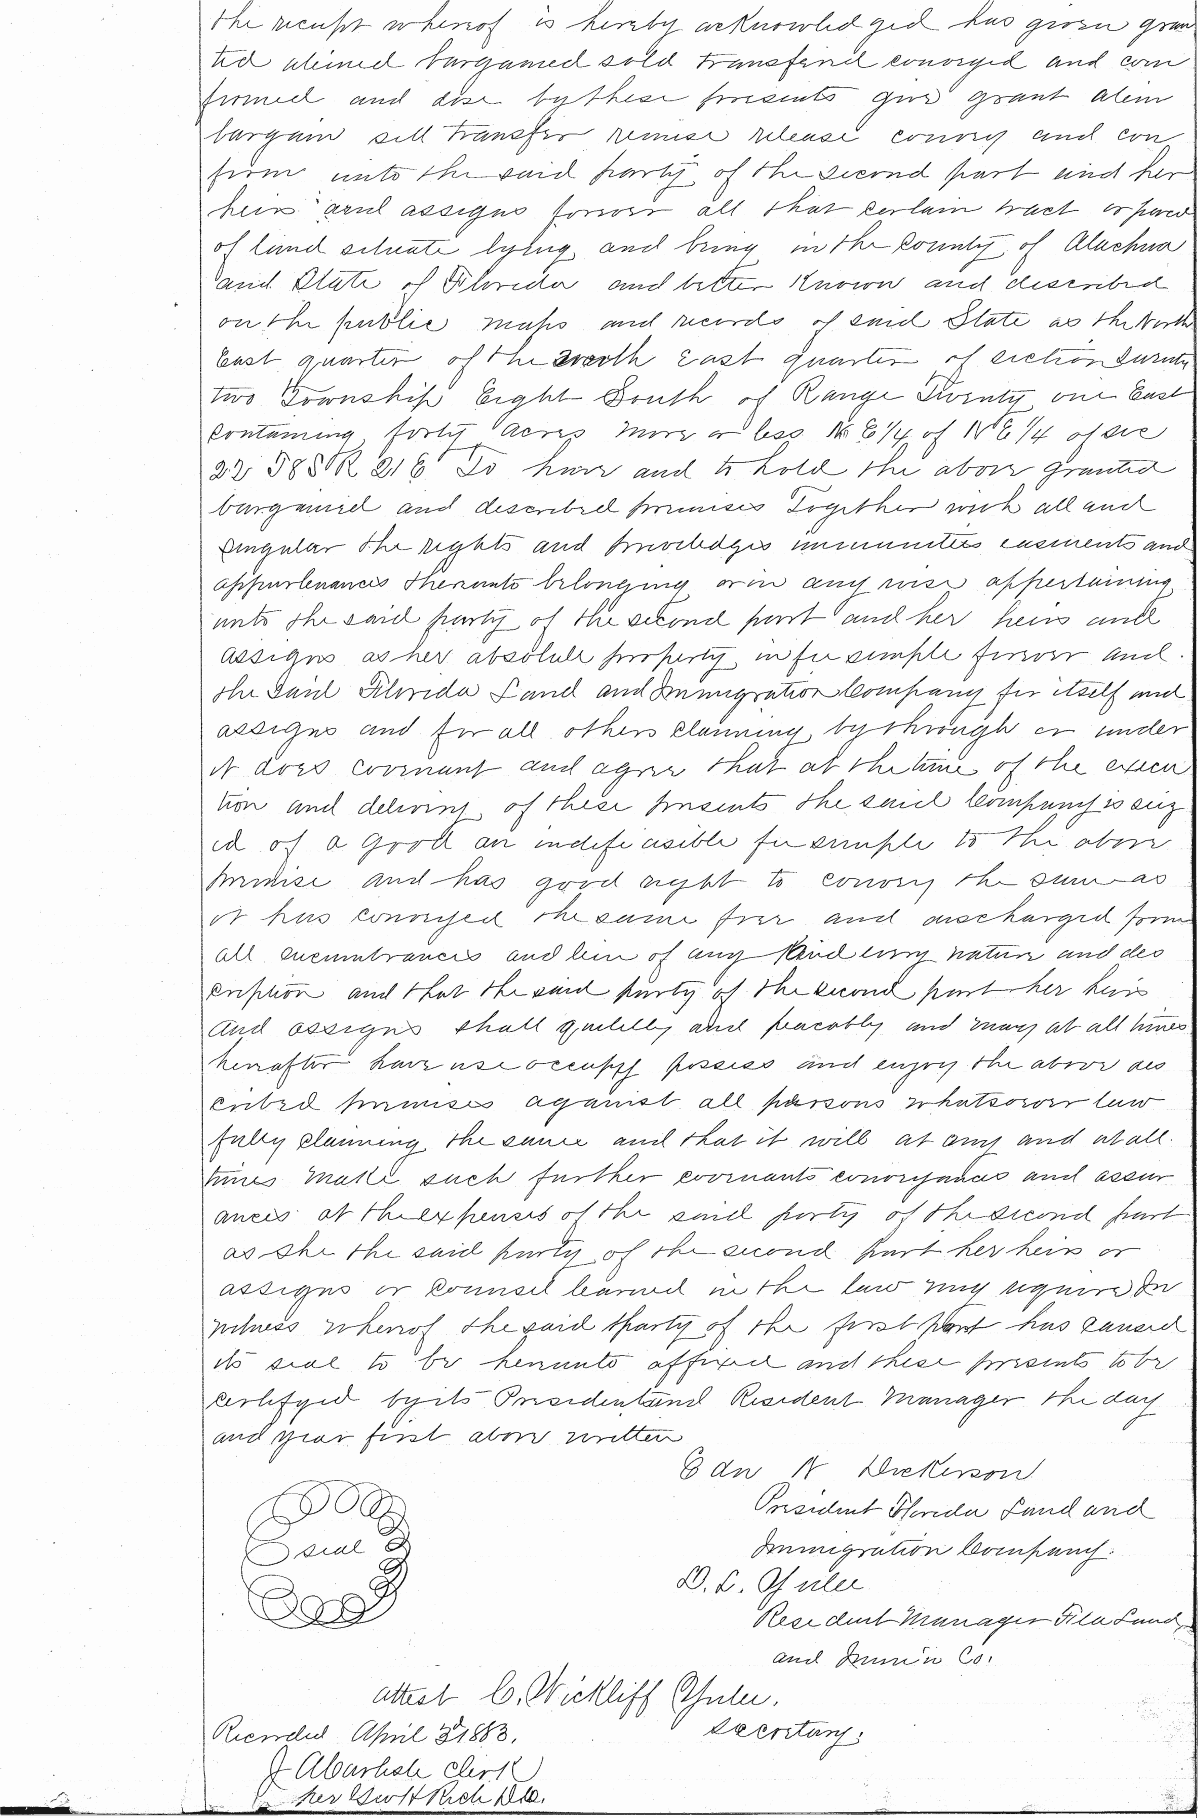 the receipt whereof is hereby acknowledged has given gran
ted aliened bargained sold transferred conveyed and con
firmed and dose by these presents give grant alien
bargain sell transfer remise release convey and con
firm unto the said party of the second part and her
heirs and assigns forever all that certain tract or parcel
of land situate lying and being in the County of Alachua
and State of Florida and better known and described
on the public maps and records of said State as the North
East quarter of the North East quarter of section twenty
two Township Eight South of Range Twenty one East
containing forty acres more or less N E 1/4 of N E 1/4 of sec
22 T 8 S R 21 E To have and to hold the above granted
bargained and described premises Together with all and
singular the rights and priviledges immunities easments and
appurtenances thereunto belonging or in any wise appertaining
unto the said party of the second part and her heirs and
assigns as her absolute property in fee simple forever and
the said Florida Land and Immigration Company for itself and
assigns and for all others claiming by through or under
it does covenant and agree that at the time of the execu
tion and delivery of these presents the said Company is seiz
ed of a good an indefeasible fee simple to the above
premise and has good right to convey the same as
it has conveyed the same free and discharged form
all encumbrances and lien of any kind every nature and des
cription and that the said party of the second part her heirs
and assigns shall quietly and peacably and may at all times
hereafter have use occupy possess and enjoy the above des
cribed premises against all persons whatsoever law
fully claiming the same and that it will at any and at all
times make such further covenants conveyances and assur
ances at the expenses of the said party of the second part
as she the said party of the second part her heirs or
assigns or counsel learned in the law may require In
witness whereof the said party of the first part has caused
its seal to be hereunto affixed and these presents to be
certifyed by its President and Resident Manager the day
and year first above written
Edw N Dickerson
President Florida Land and
Immigration Company.
seal
D. L. Yulee
Resident Manager Fla Land
and Imm'n Co.
attest C. Wickliff Yulee.
Secretary.
Recorded April 3d 1883.
J A Carlisle Clerk
per